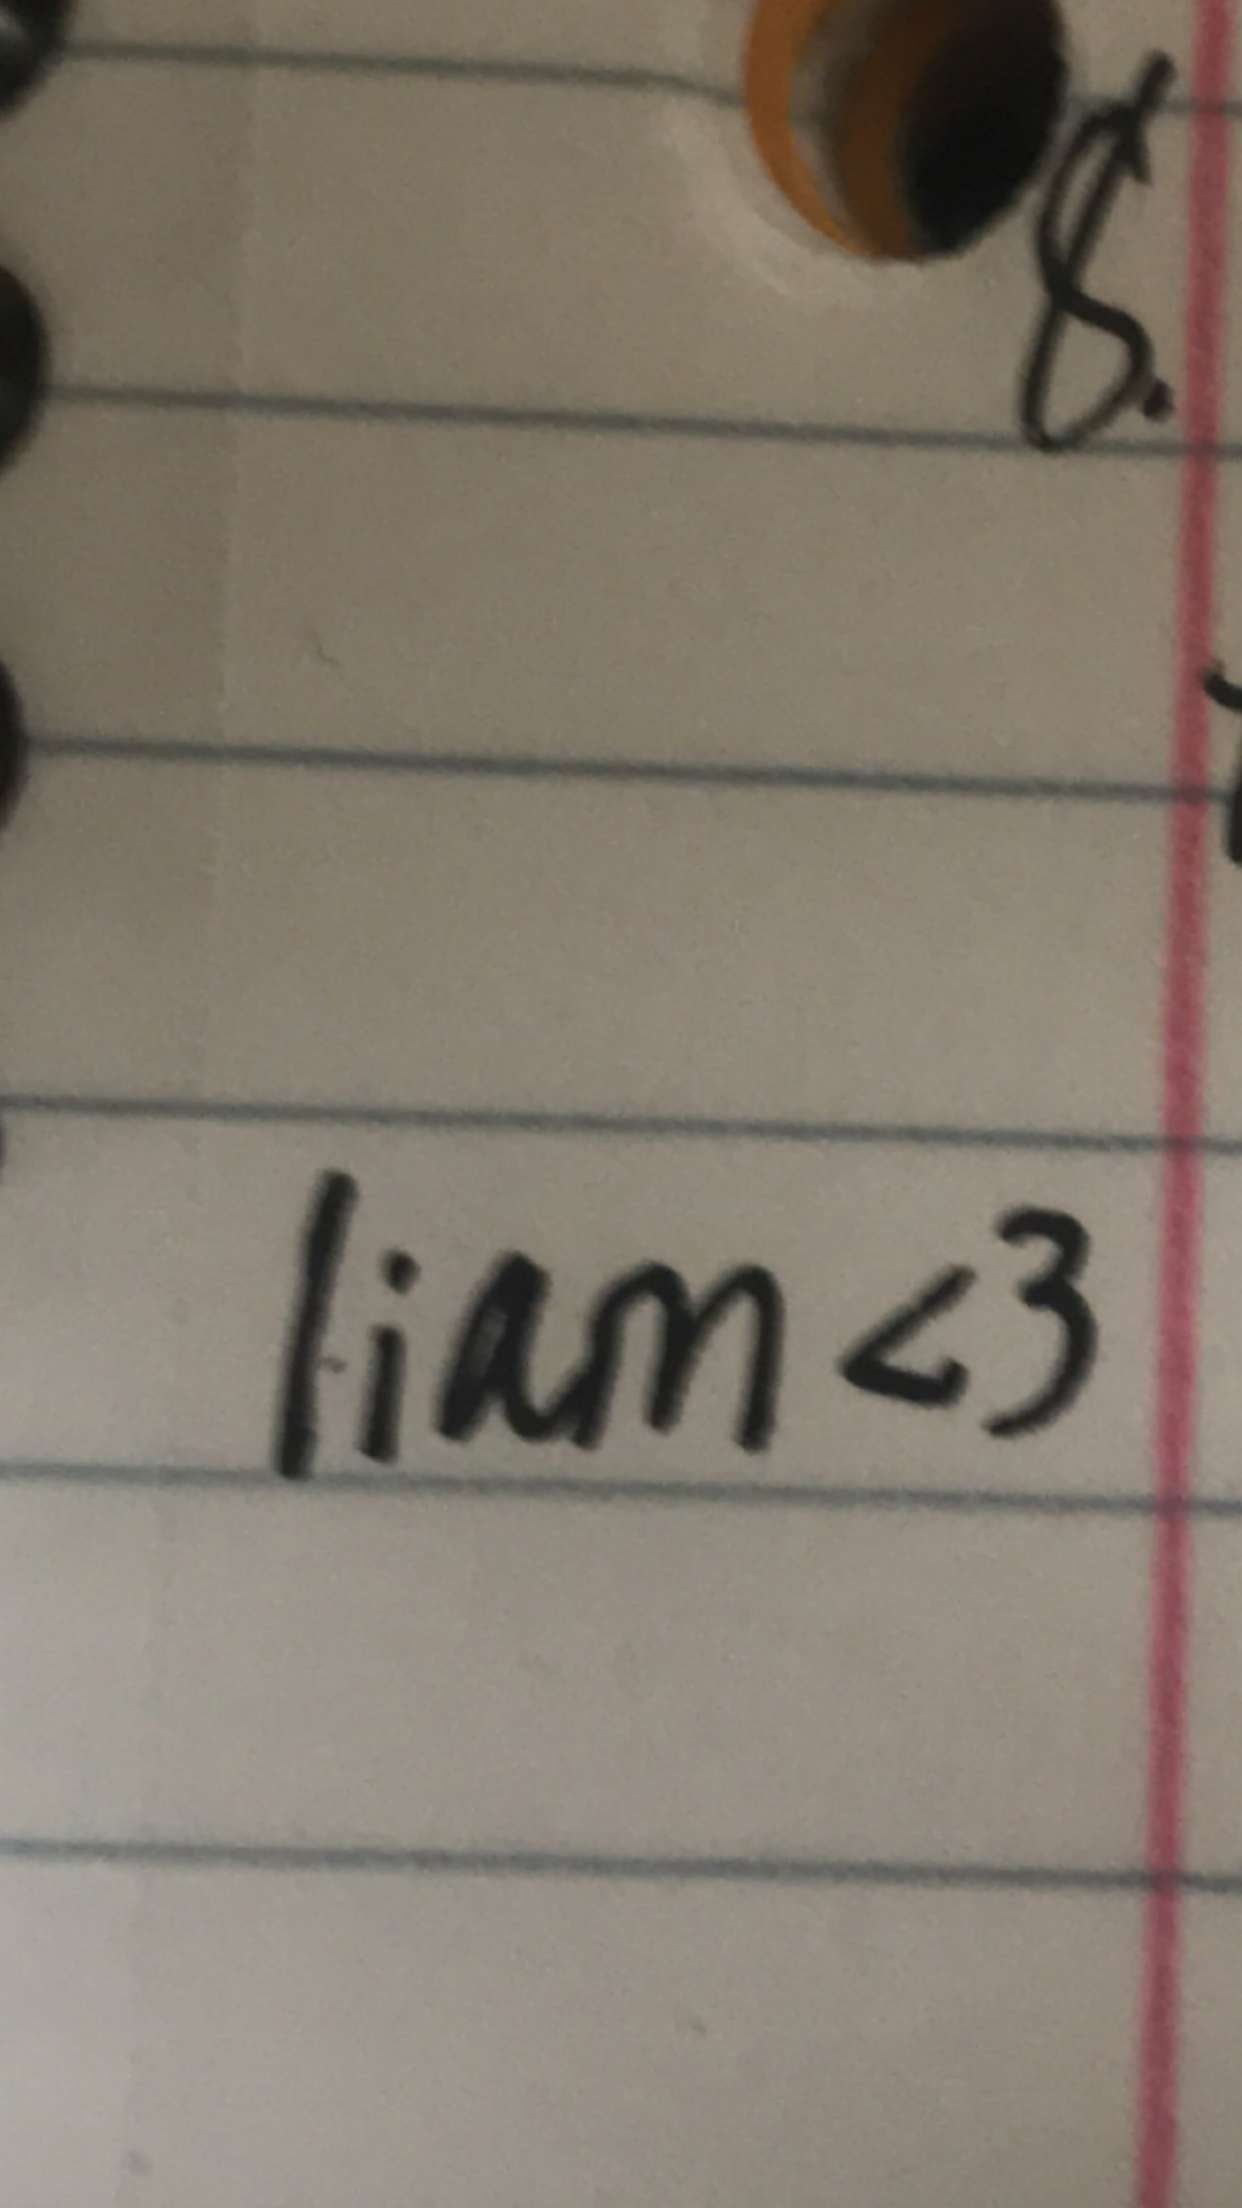 8.
liam <3